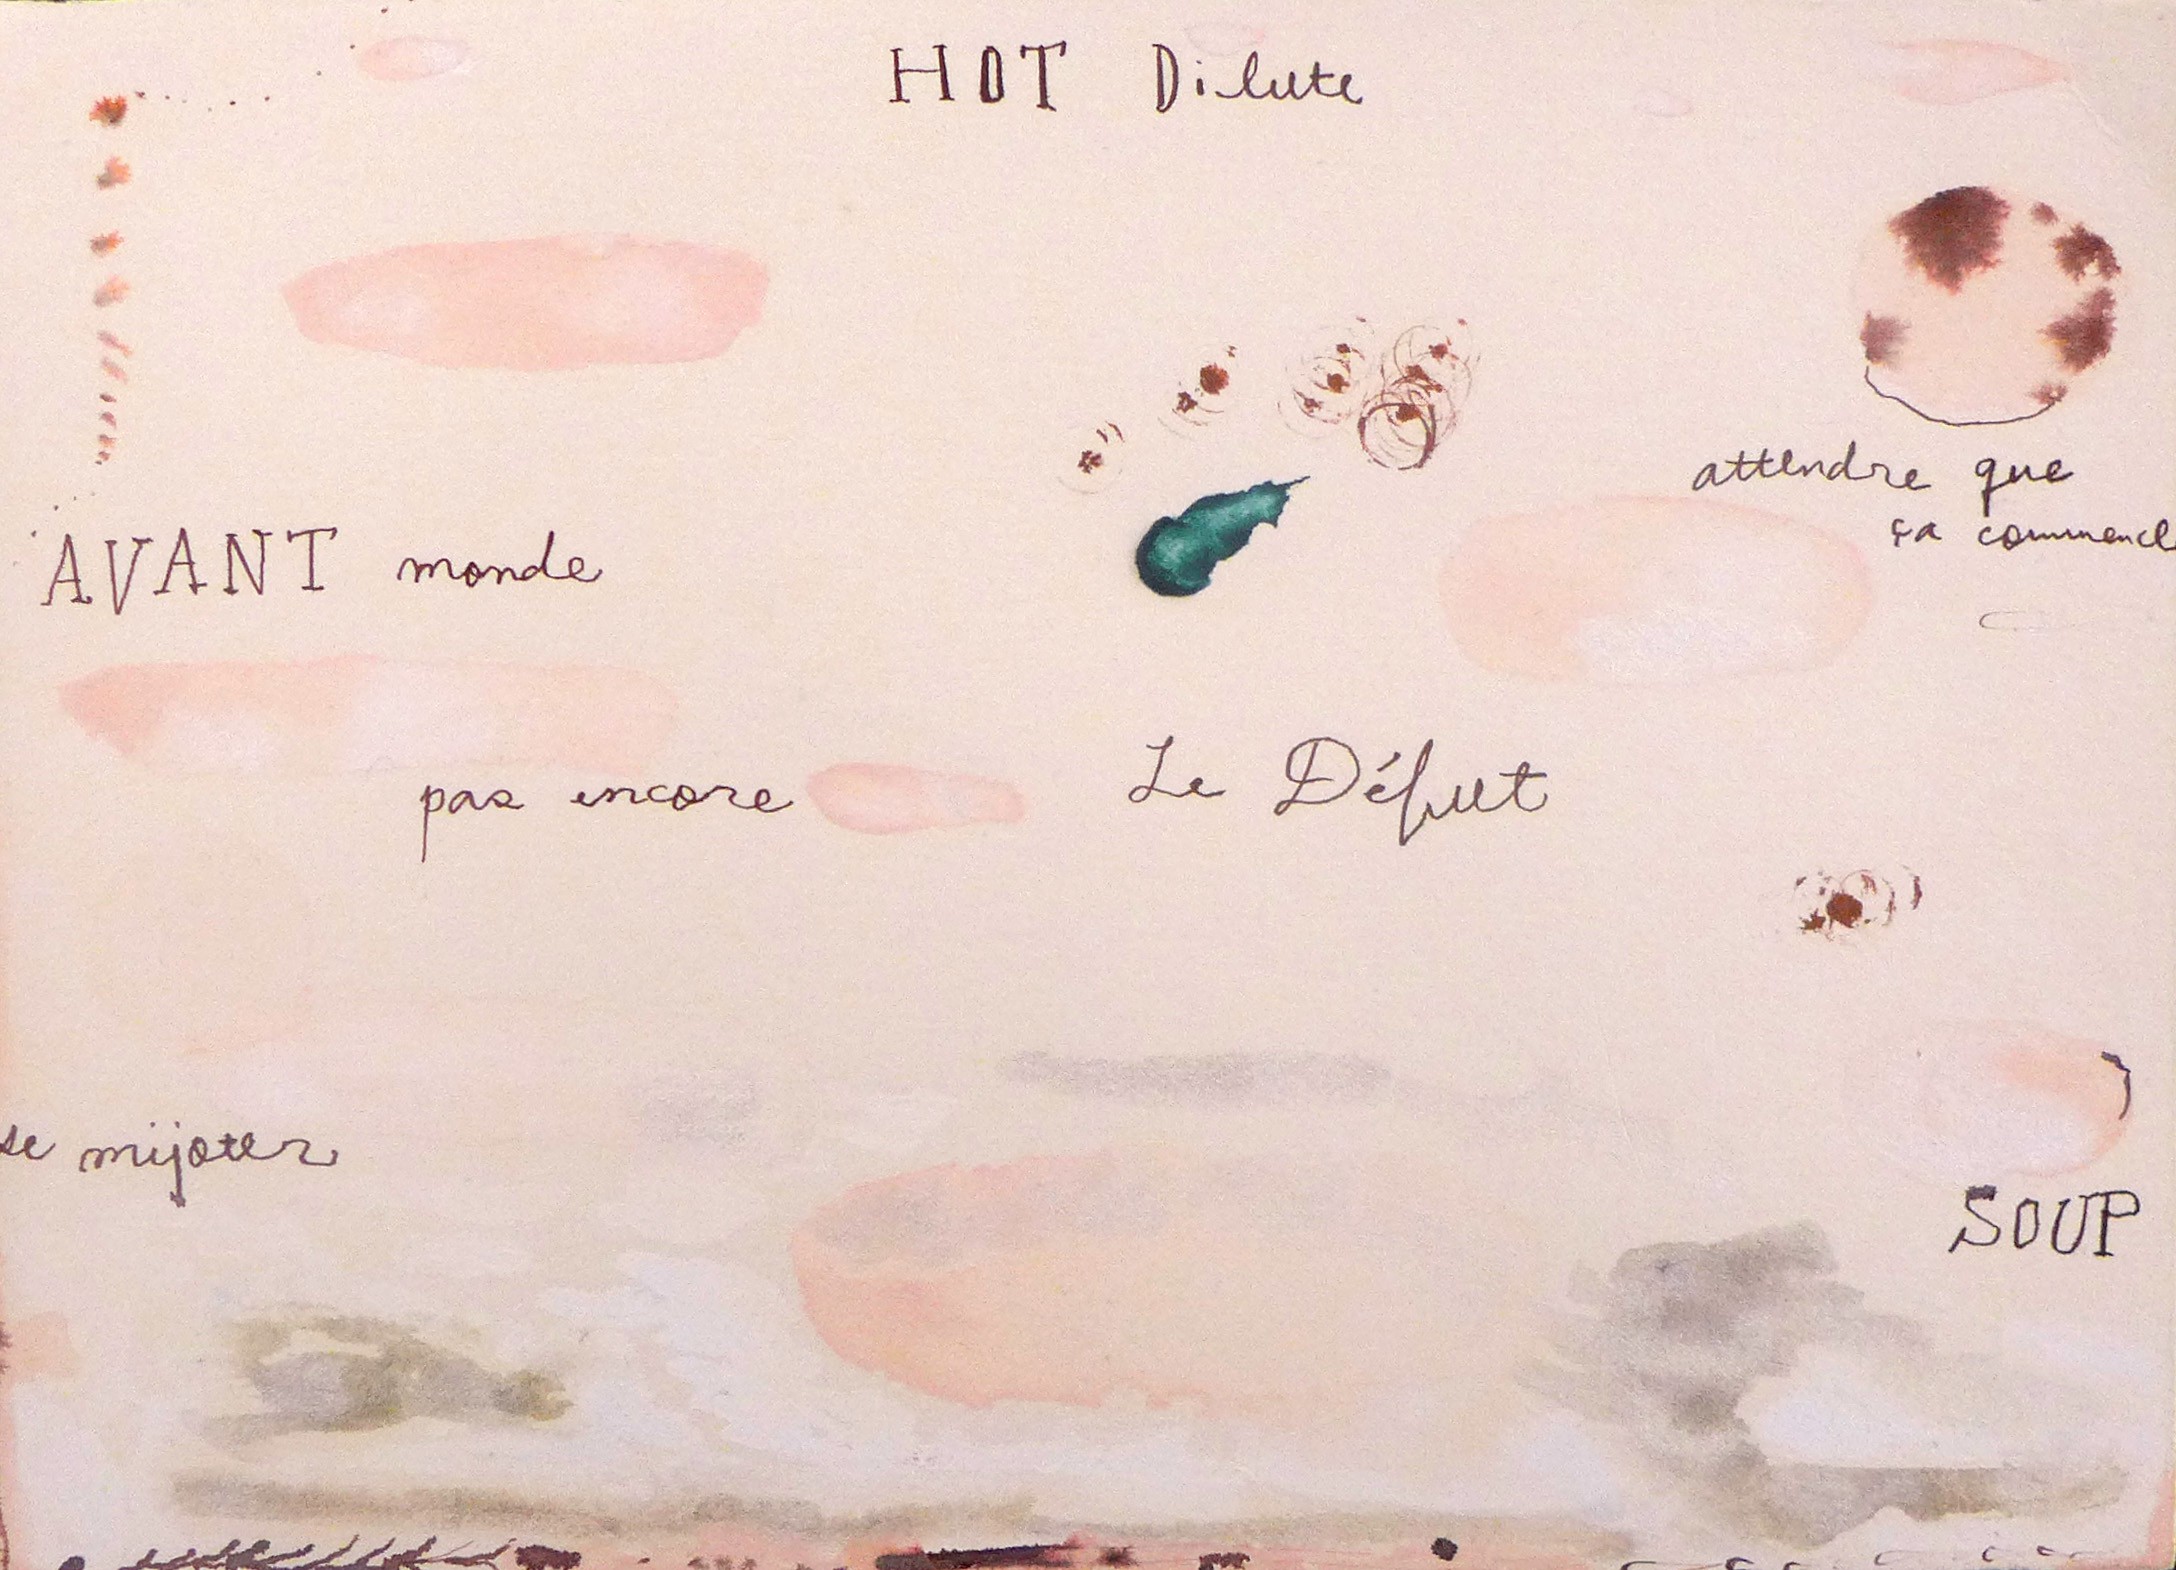 HOT Dilute
attendre que
ça commence
AVANT monde
pas encore
Le Défut
se mijoter
SOUP